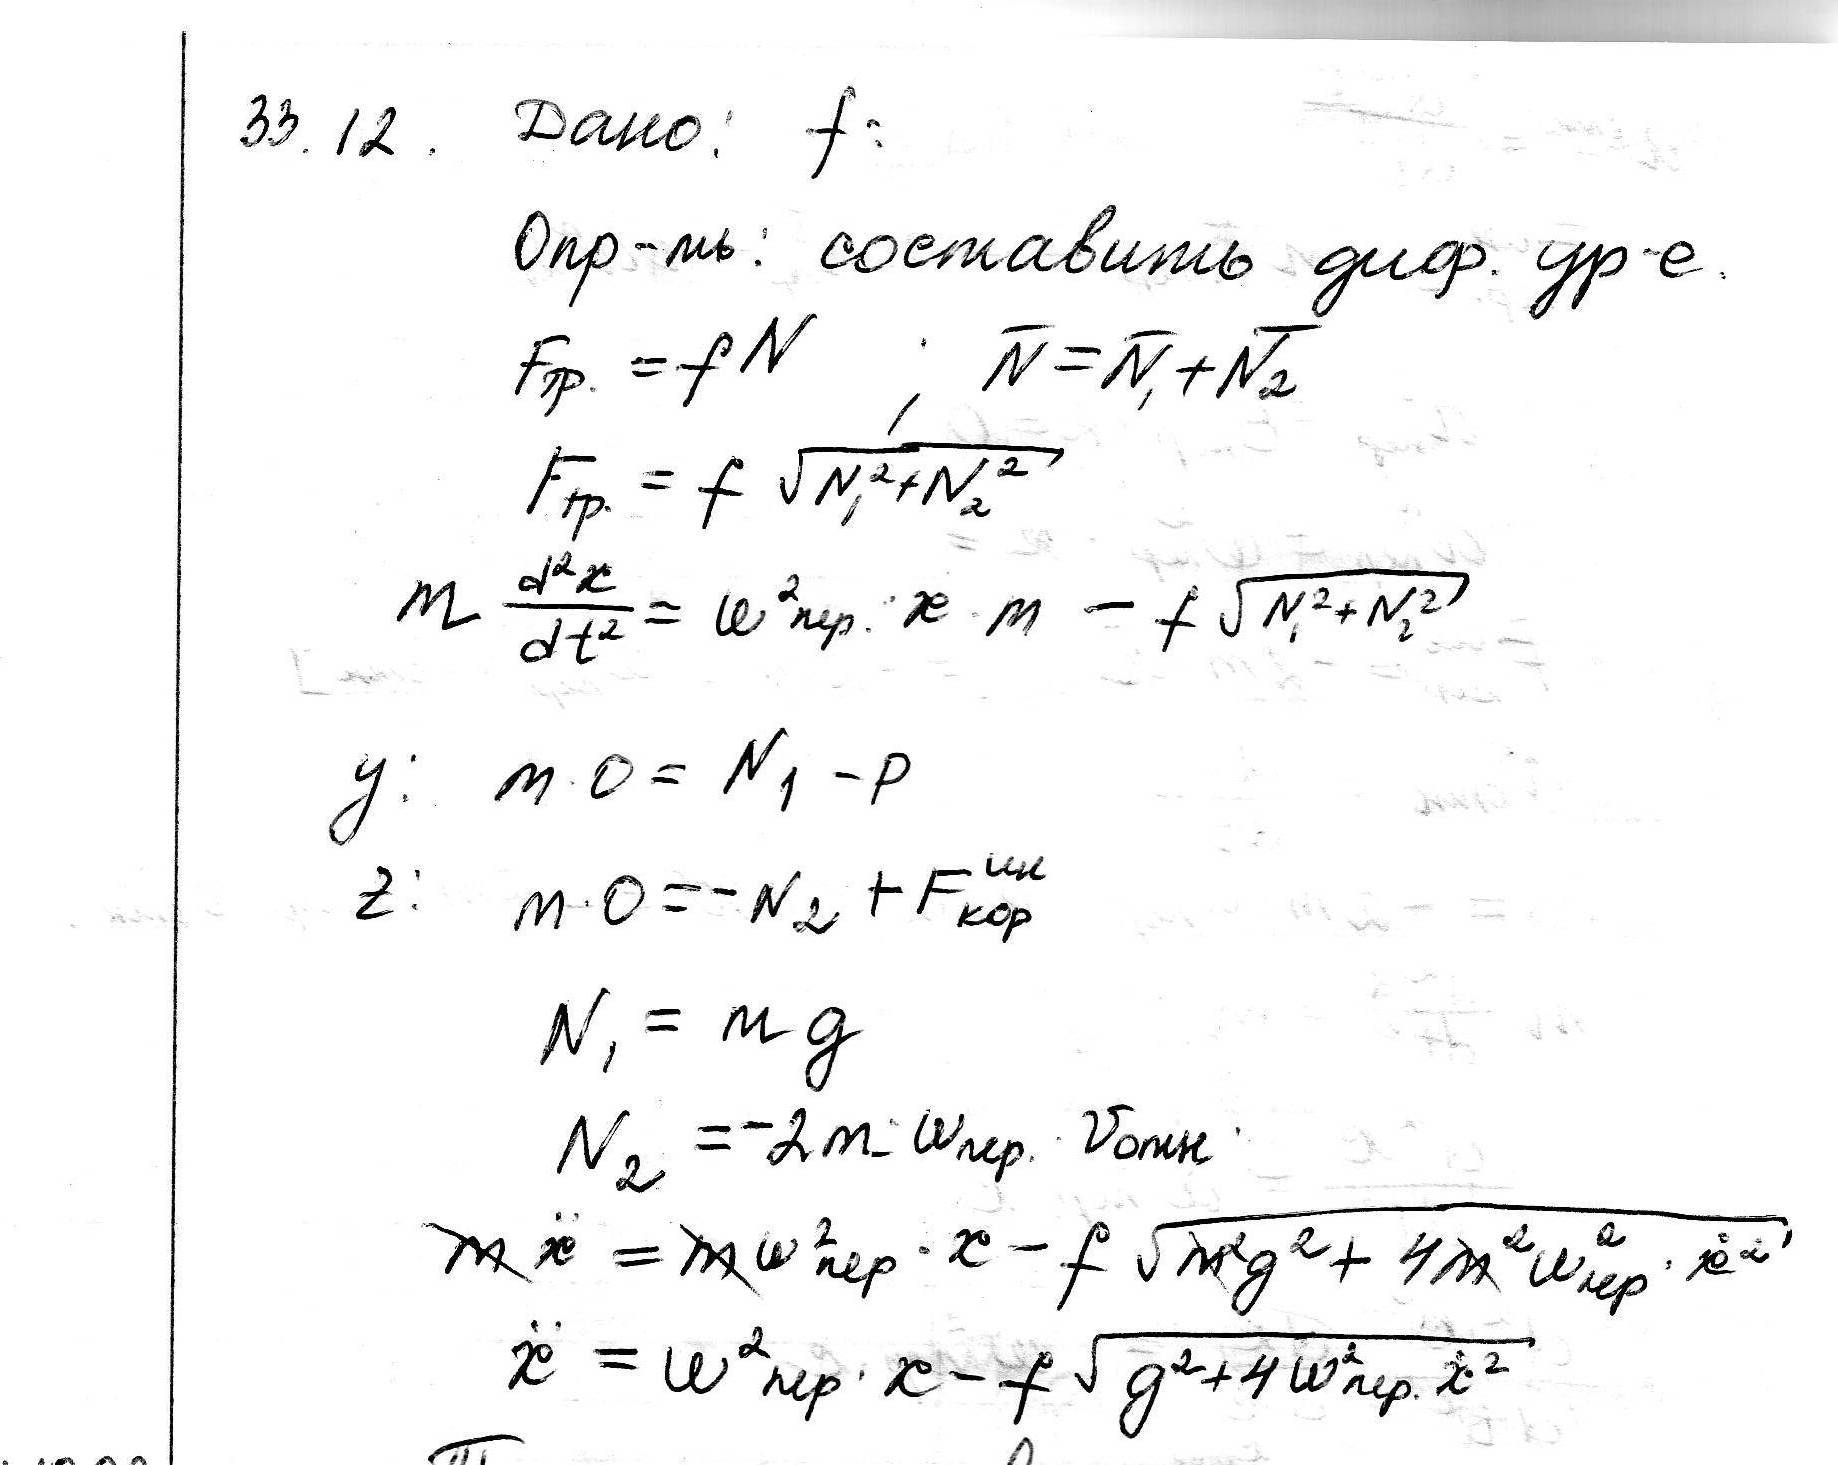 33.12. Дано: f:
Опр-ть: составить диф. ур-е.
Fтр. = fN ; N̄ = N̄₁ + N̄₂
Fтр. = f √(N₁² + N₂²)
m d²x/dt² = ω²пер. · x · m − f √(N₁² + N₂²)
y: m·0 = N₁ − P
z: m·0 = −N₂ + Fкор^ин
N₁ = mg
N₂ = −2m · ωпер. · Vотн.
mẍ = mω²пер · x − f √(m²g² + 4m²ω²пер · ẋ²)
ẍ = ω²пер · x − f √(g² + 4ω²пер. ẋ²)